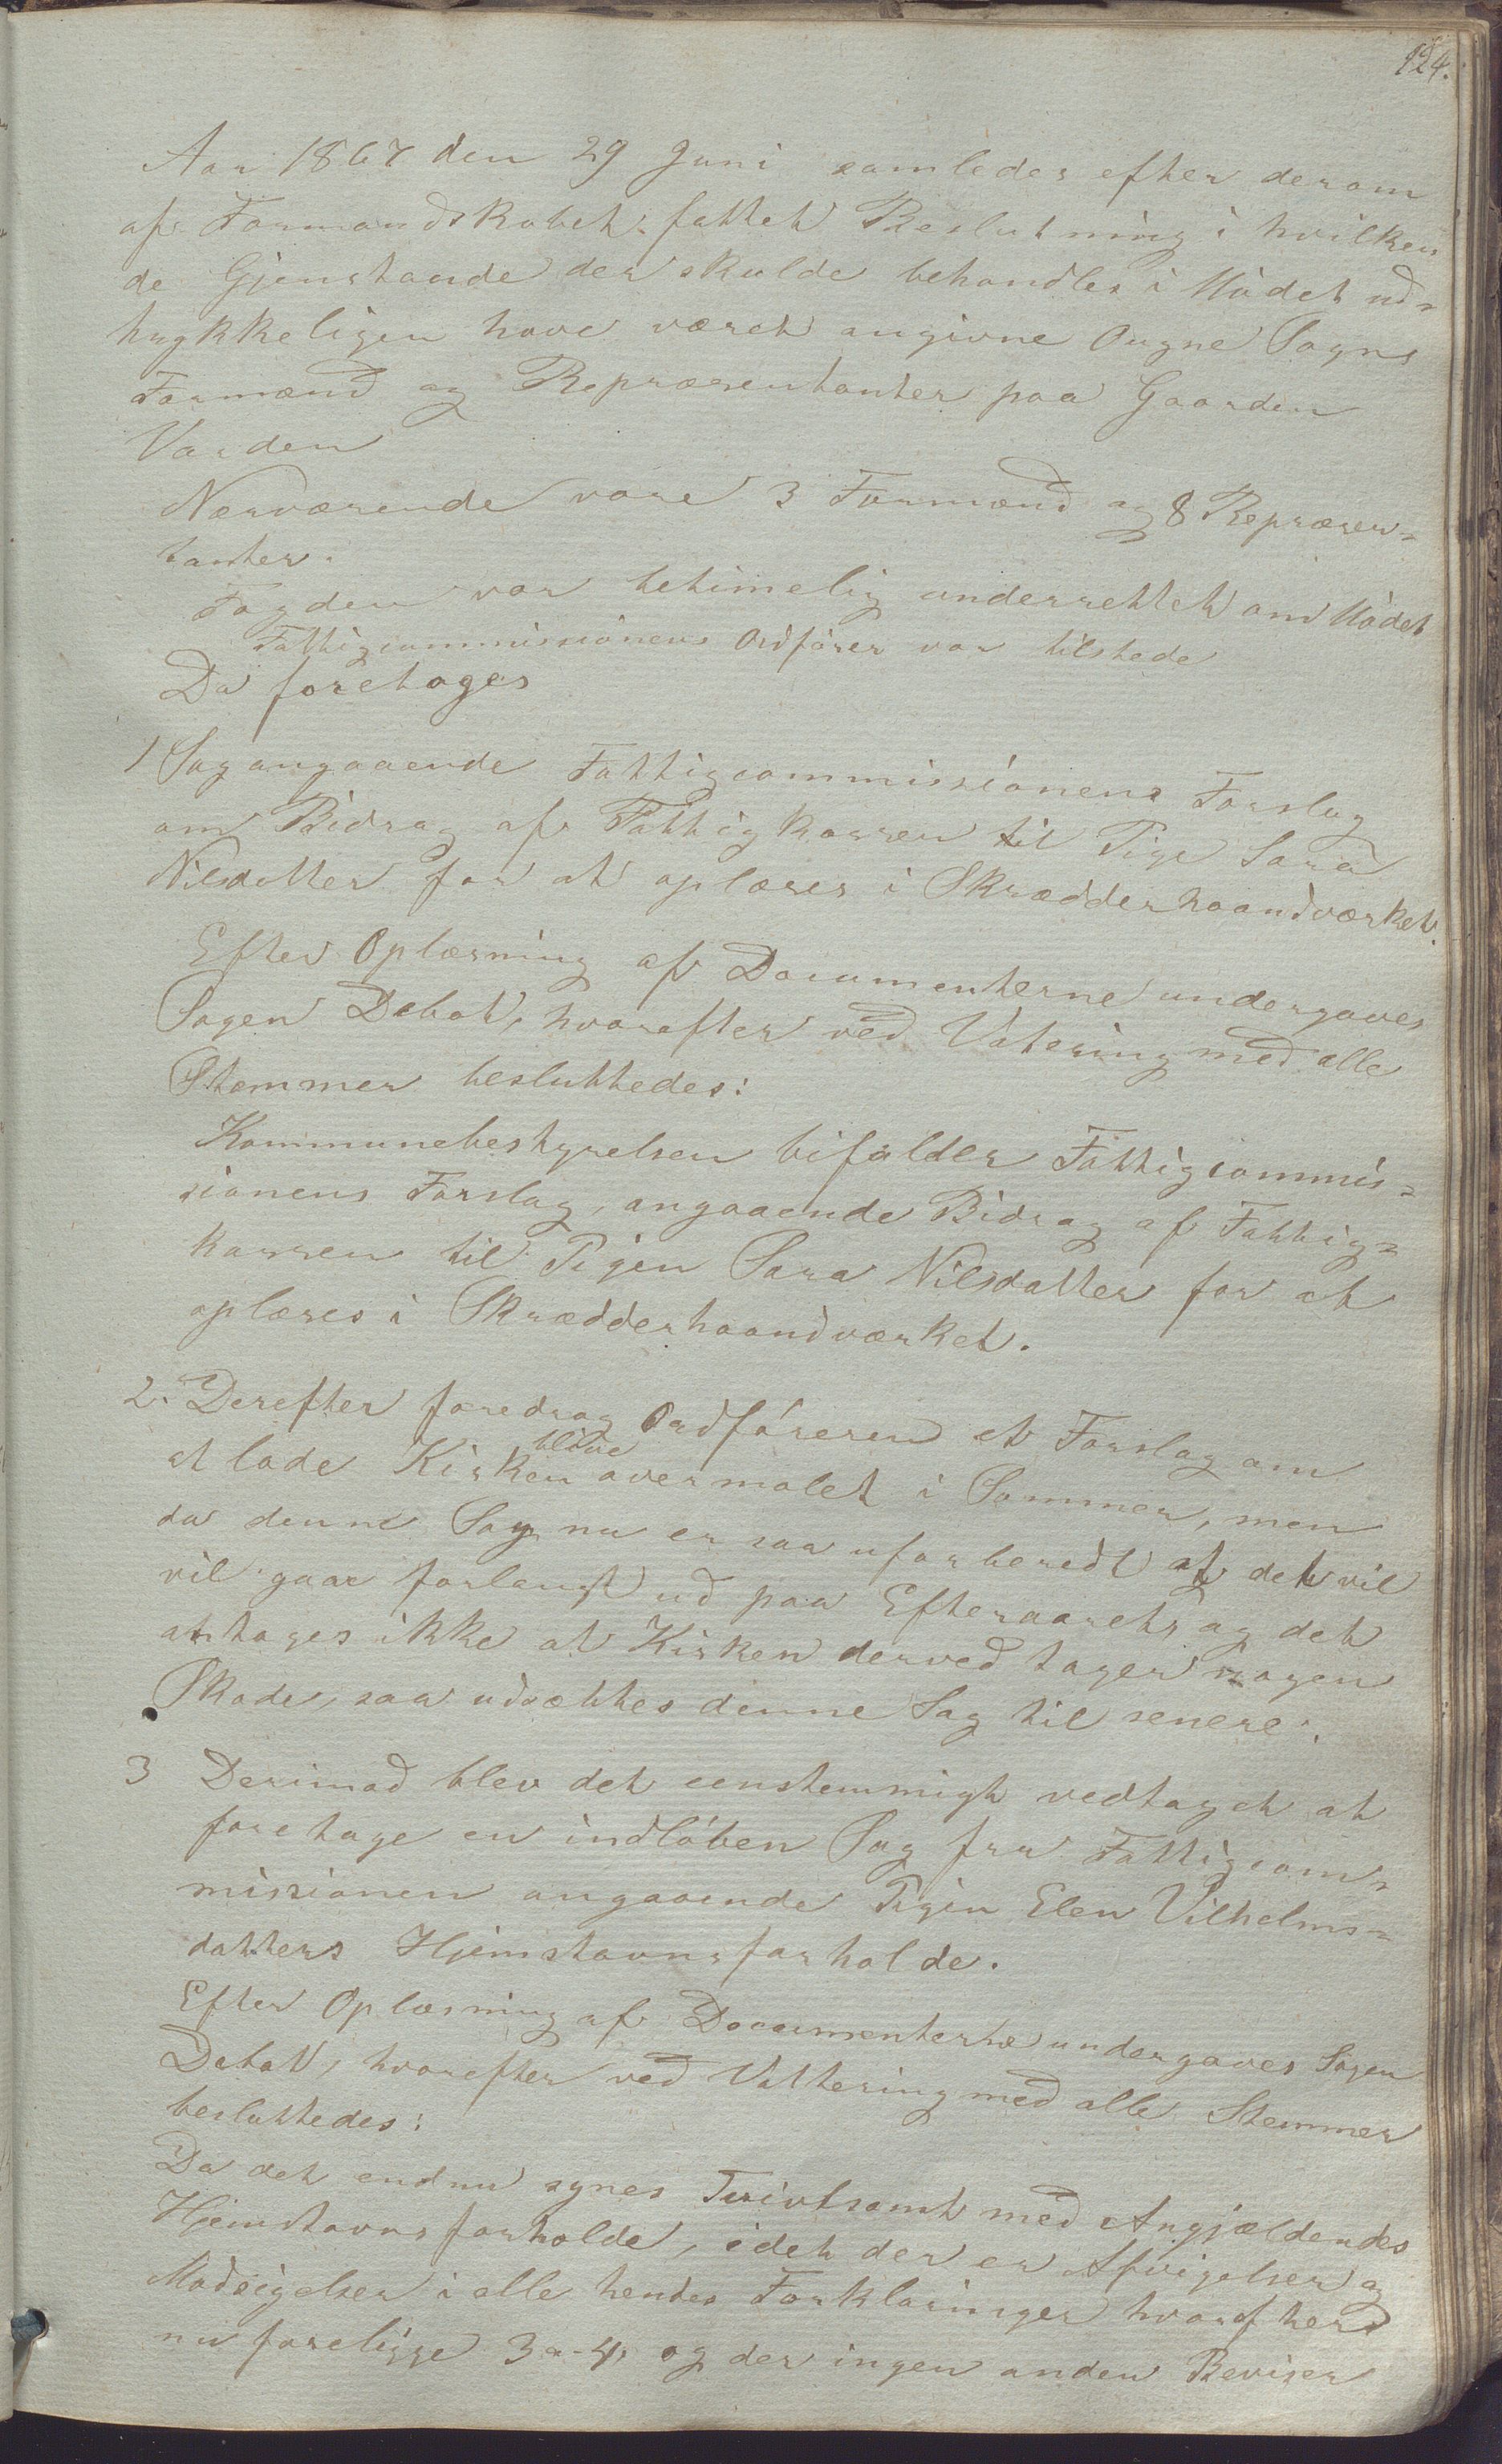 124.
Aar 1867 den 29 Juni samledes efter derom
af Formandskabet fattet Beslutning i hvilken
de Gjenstande der skulde behandles i Mödet ud-
trykkeligen have været angivne Ougne Sogns
Formænd og Repræsentanter paa Gaarden
Varden
Nærværende vare 3 Formænd og 8 Repræsen-
tanter.
Fogden var betimelig underrettet om Mödet
Fattigcommissionens Ordförer var tilstede
Da foretoges
1 Sag angaaende Fattigcommissionens Forslag
om Bidrag af Fattigkassen til Pige Sara
Nilsdatter for at oplæres i Skrædderhaandværket.
Efter Oplæsning af Documenterne undergaves
Sagen Debat, hvorefter ved Votering med alle
Stemmer besluttedes:
Kommunebestyrelsen bifalder Fattigcommis-
sionens Forslag, angaaende Bidrag af Fattig-
kassen til Pigen Sara Nilsdatter for at
oplæres i Skrædderhaandværket.
2. Derefter foredrog Ordföreren et Forslag om
at lade Kirken blive overmalet i Sommer, men
da denne Sag nu er saa uforberedt at det vil
vil gaae forlangt ud paa Efteraaret, og det
antages ikke at Kirken derved tager nogen
Skade, saa udsættes denne Sag til senere.
3 Derimod blev det eenstemmigt vedtaget at
foretage en indlöben Sag fra Fattigcom-
missionen angaaende Pigen Elen Vilhelms-
datters Hjemstavnsforholde.
Efter Oplæsning af Documenterne undergaves Sagen
Debat, hvorefter ved Vottering med alle Stemmer
besluttedes:
Da det endnu synes Tvivlsomt med Angjældendes
Hjemstavnsforholde, idet der er Afvigelser og
Modsigelser i alle hendes Forklaringer hvoraf her
nu foreligge 3 a 4, og der ingen anden Beviser